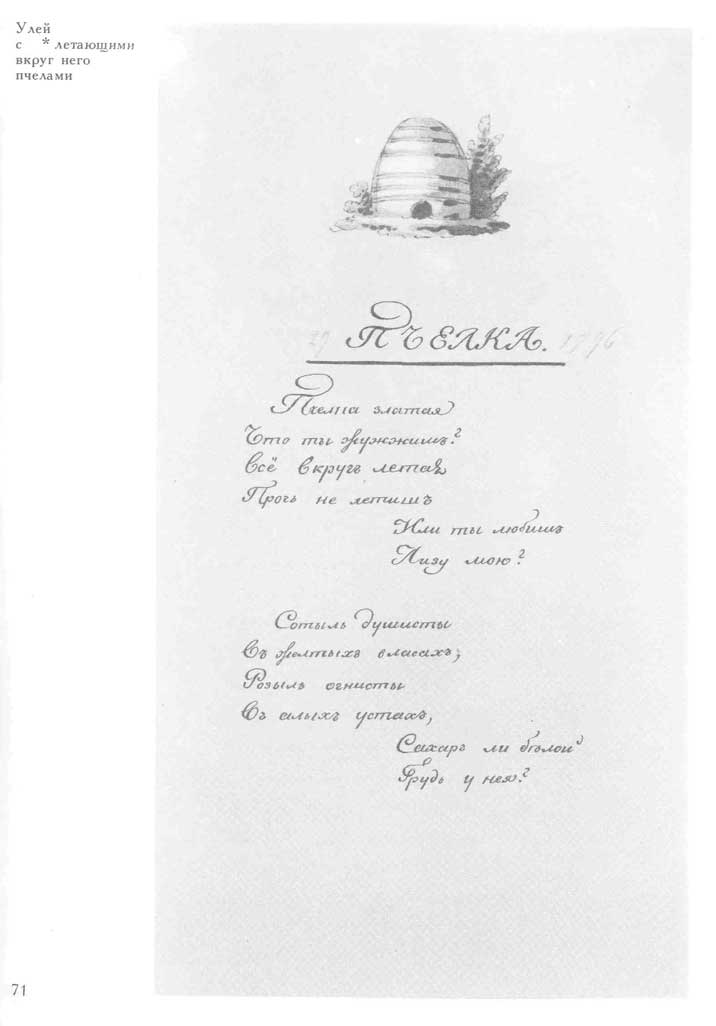 Улей
с *летающими
вкруг него
пчелами
ПЧЕЛКА.
1796
Пчелка златая
Что ты жужжишъ?
Всё вкругъ летая
Прочь не летишъ
Или ты любишъ
Лизу мою?
Соты ль душисты
Въ желтыхъ власахъ,
Розы ль огнисты
Въ алыхъ устахъ,
Сахаръ ли бѣлой
Грудь у нея?
71